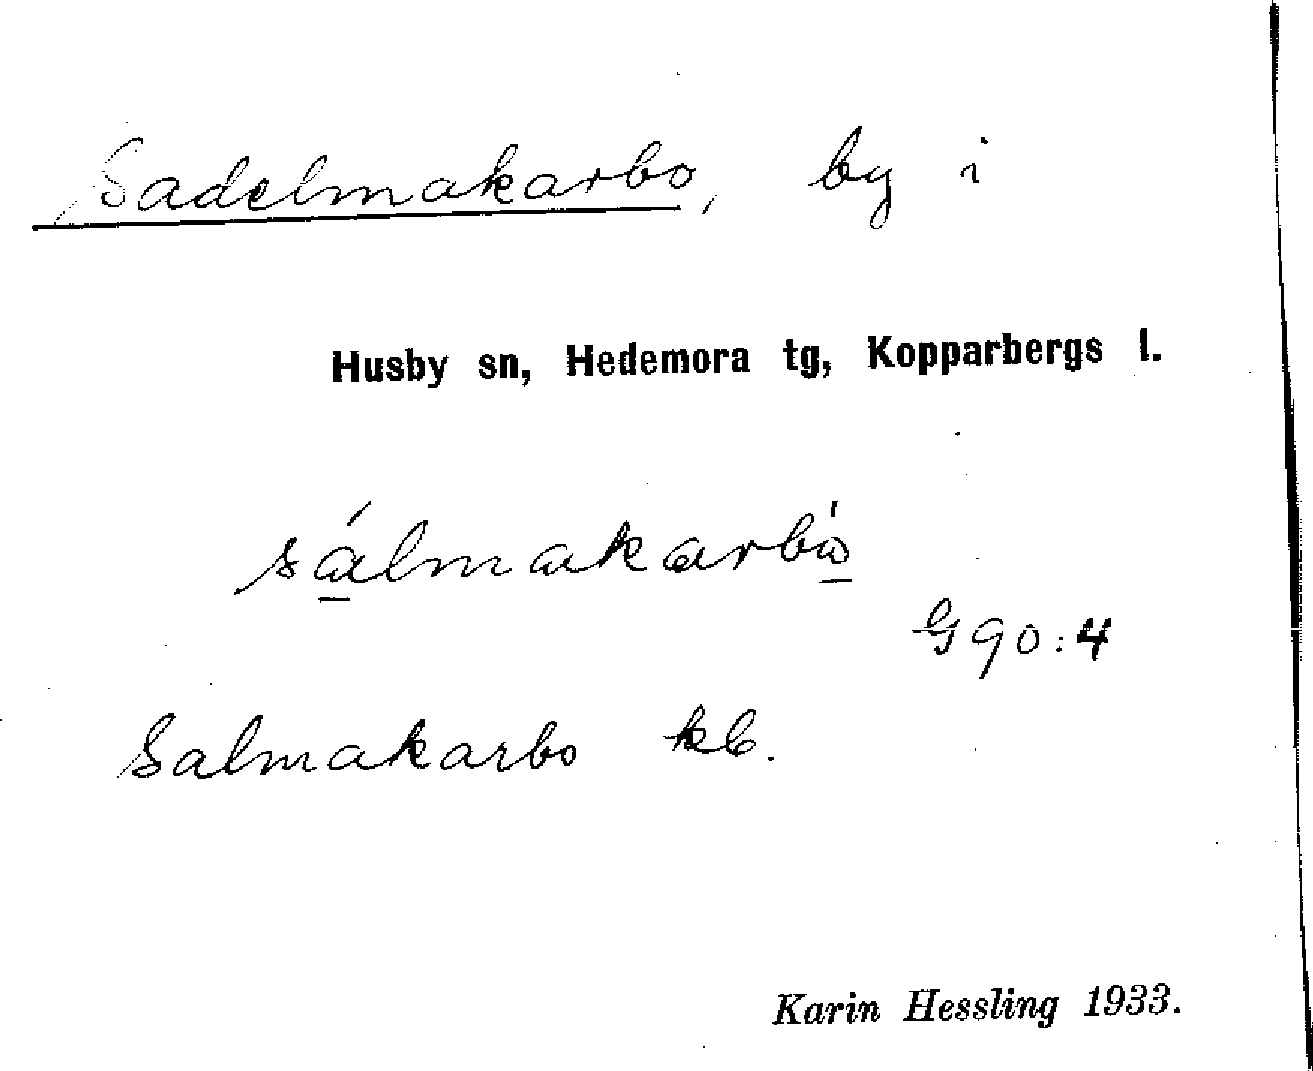 Sadelmakarbo, by i
Husby sn, Hedemora tg, Kopparbergs l.
sálmakarbò
G 90:4
Salmakarbo kb.
Karin Hessling 1933.